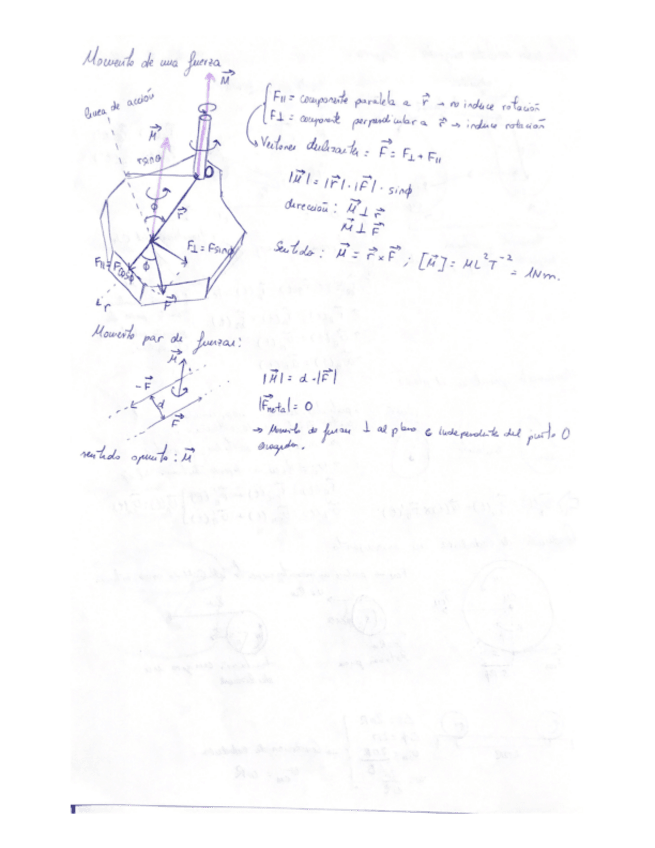 Momento de una fuerza
M
línea de acción
F∥ = componente paralela a r → no induce rotación
F⊥ = componente perpendicular a r → induce rotación
M
r sinφ
→ Vectores deslizantes = F = F⊥ + F∥
O
|M| = |r| · |F| · sinφ
φ
r
dirección: M ⊥ r
M ⊥ F
F⊥ = F sinφ
Sentido: M = r × F ; [M] = ML²T⁻² = 1Nm.
F∥ = F cosφ
φ
F
r
Momento par de fuerzas:
M
|M| = d · |F|
-F
d
|Fneta| = 0
F
→ Momento de fuerzas ⊥ al plano e independiente del punto O
sentido opuesto: M